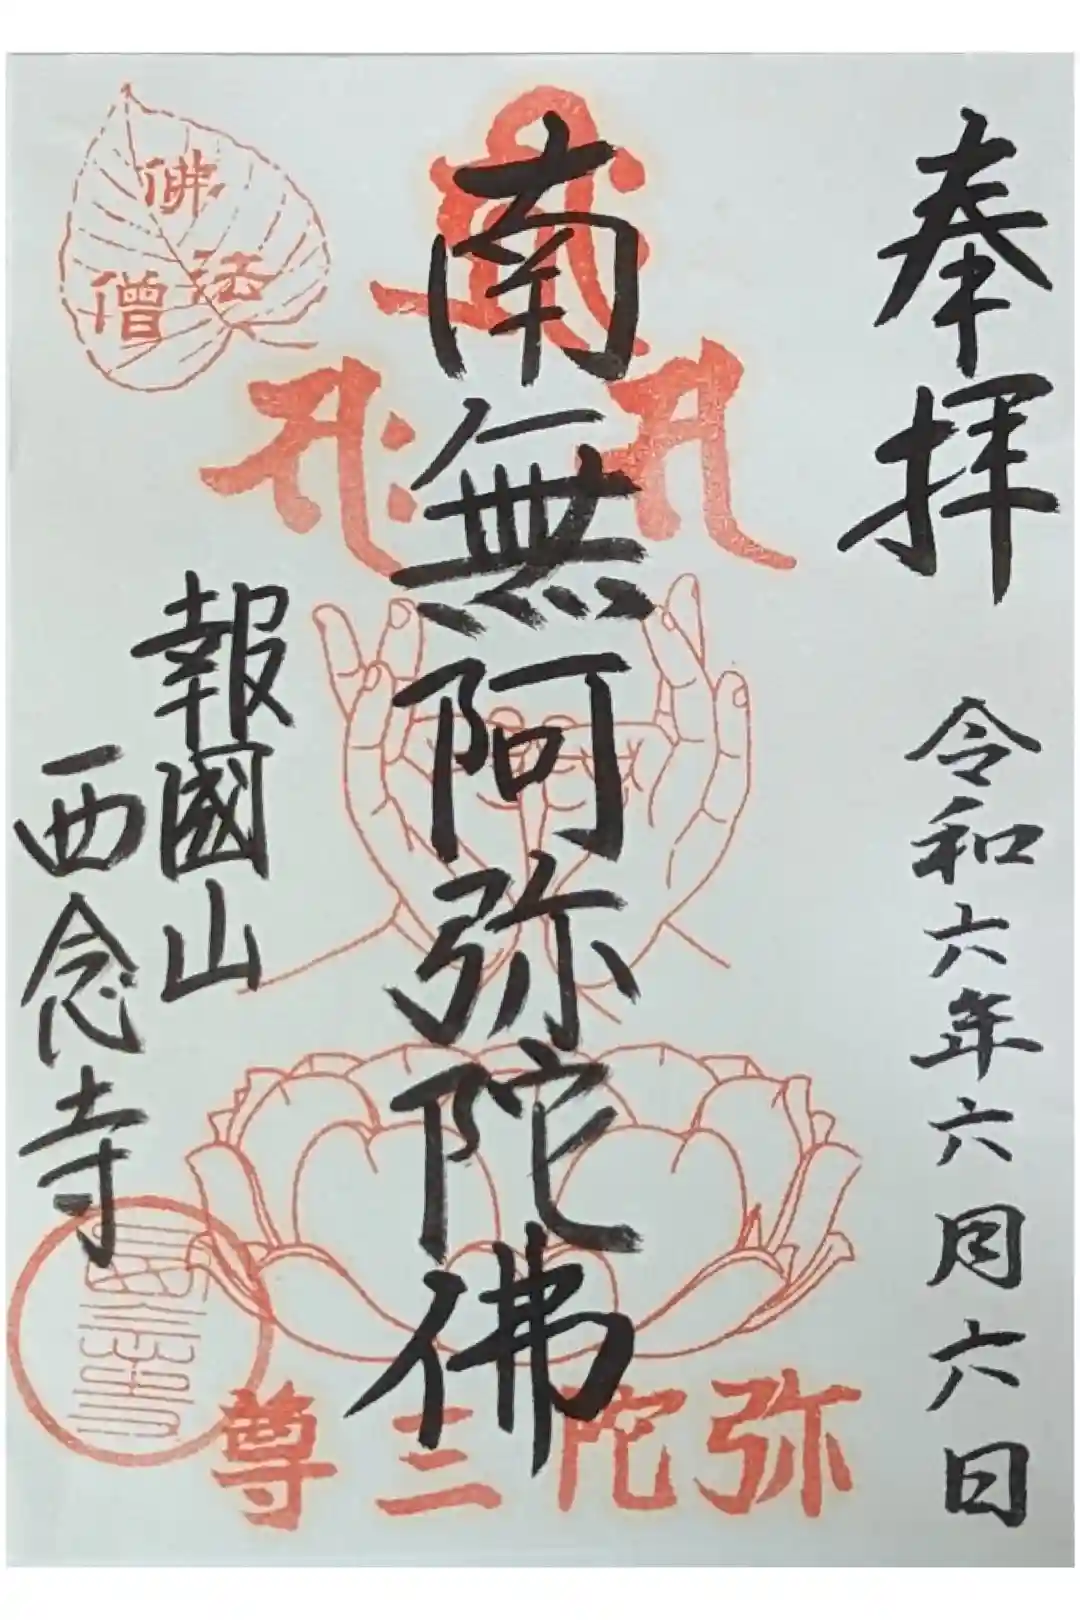 奉拝
令和六年六月六日
南無阿弥陀佛
報國山
西念寺
佛
法
僧
弥陀三尊